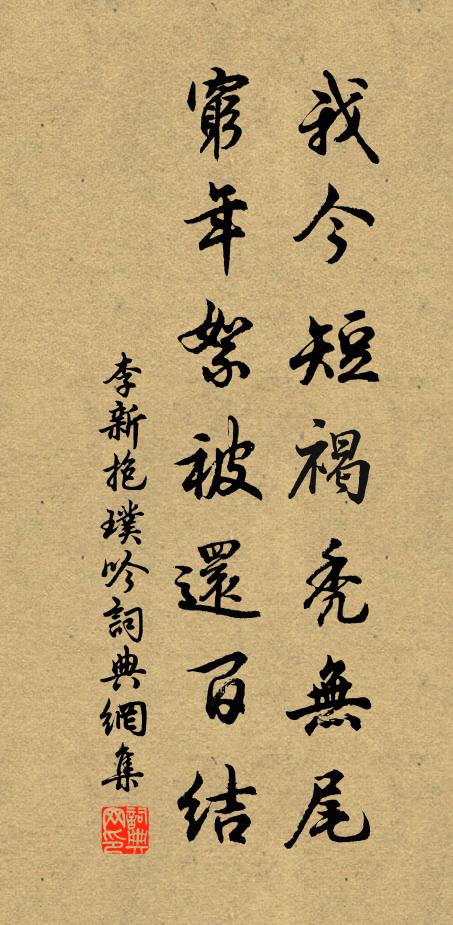 我今短褐禿無尾
窮年絮被還百結
李新抱璞吟詞典網集
詞典網印